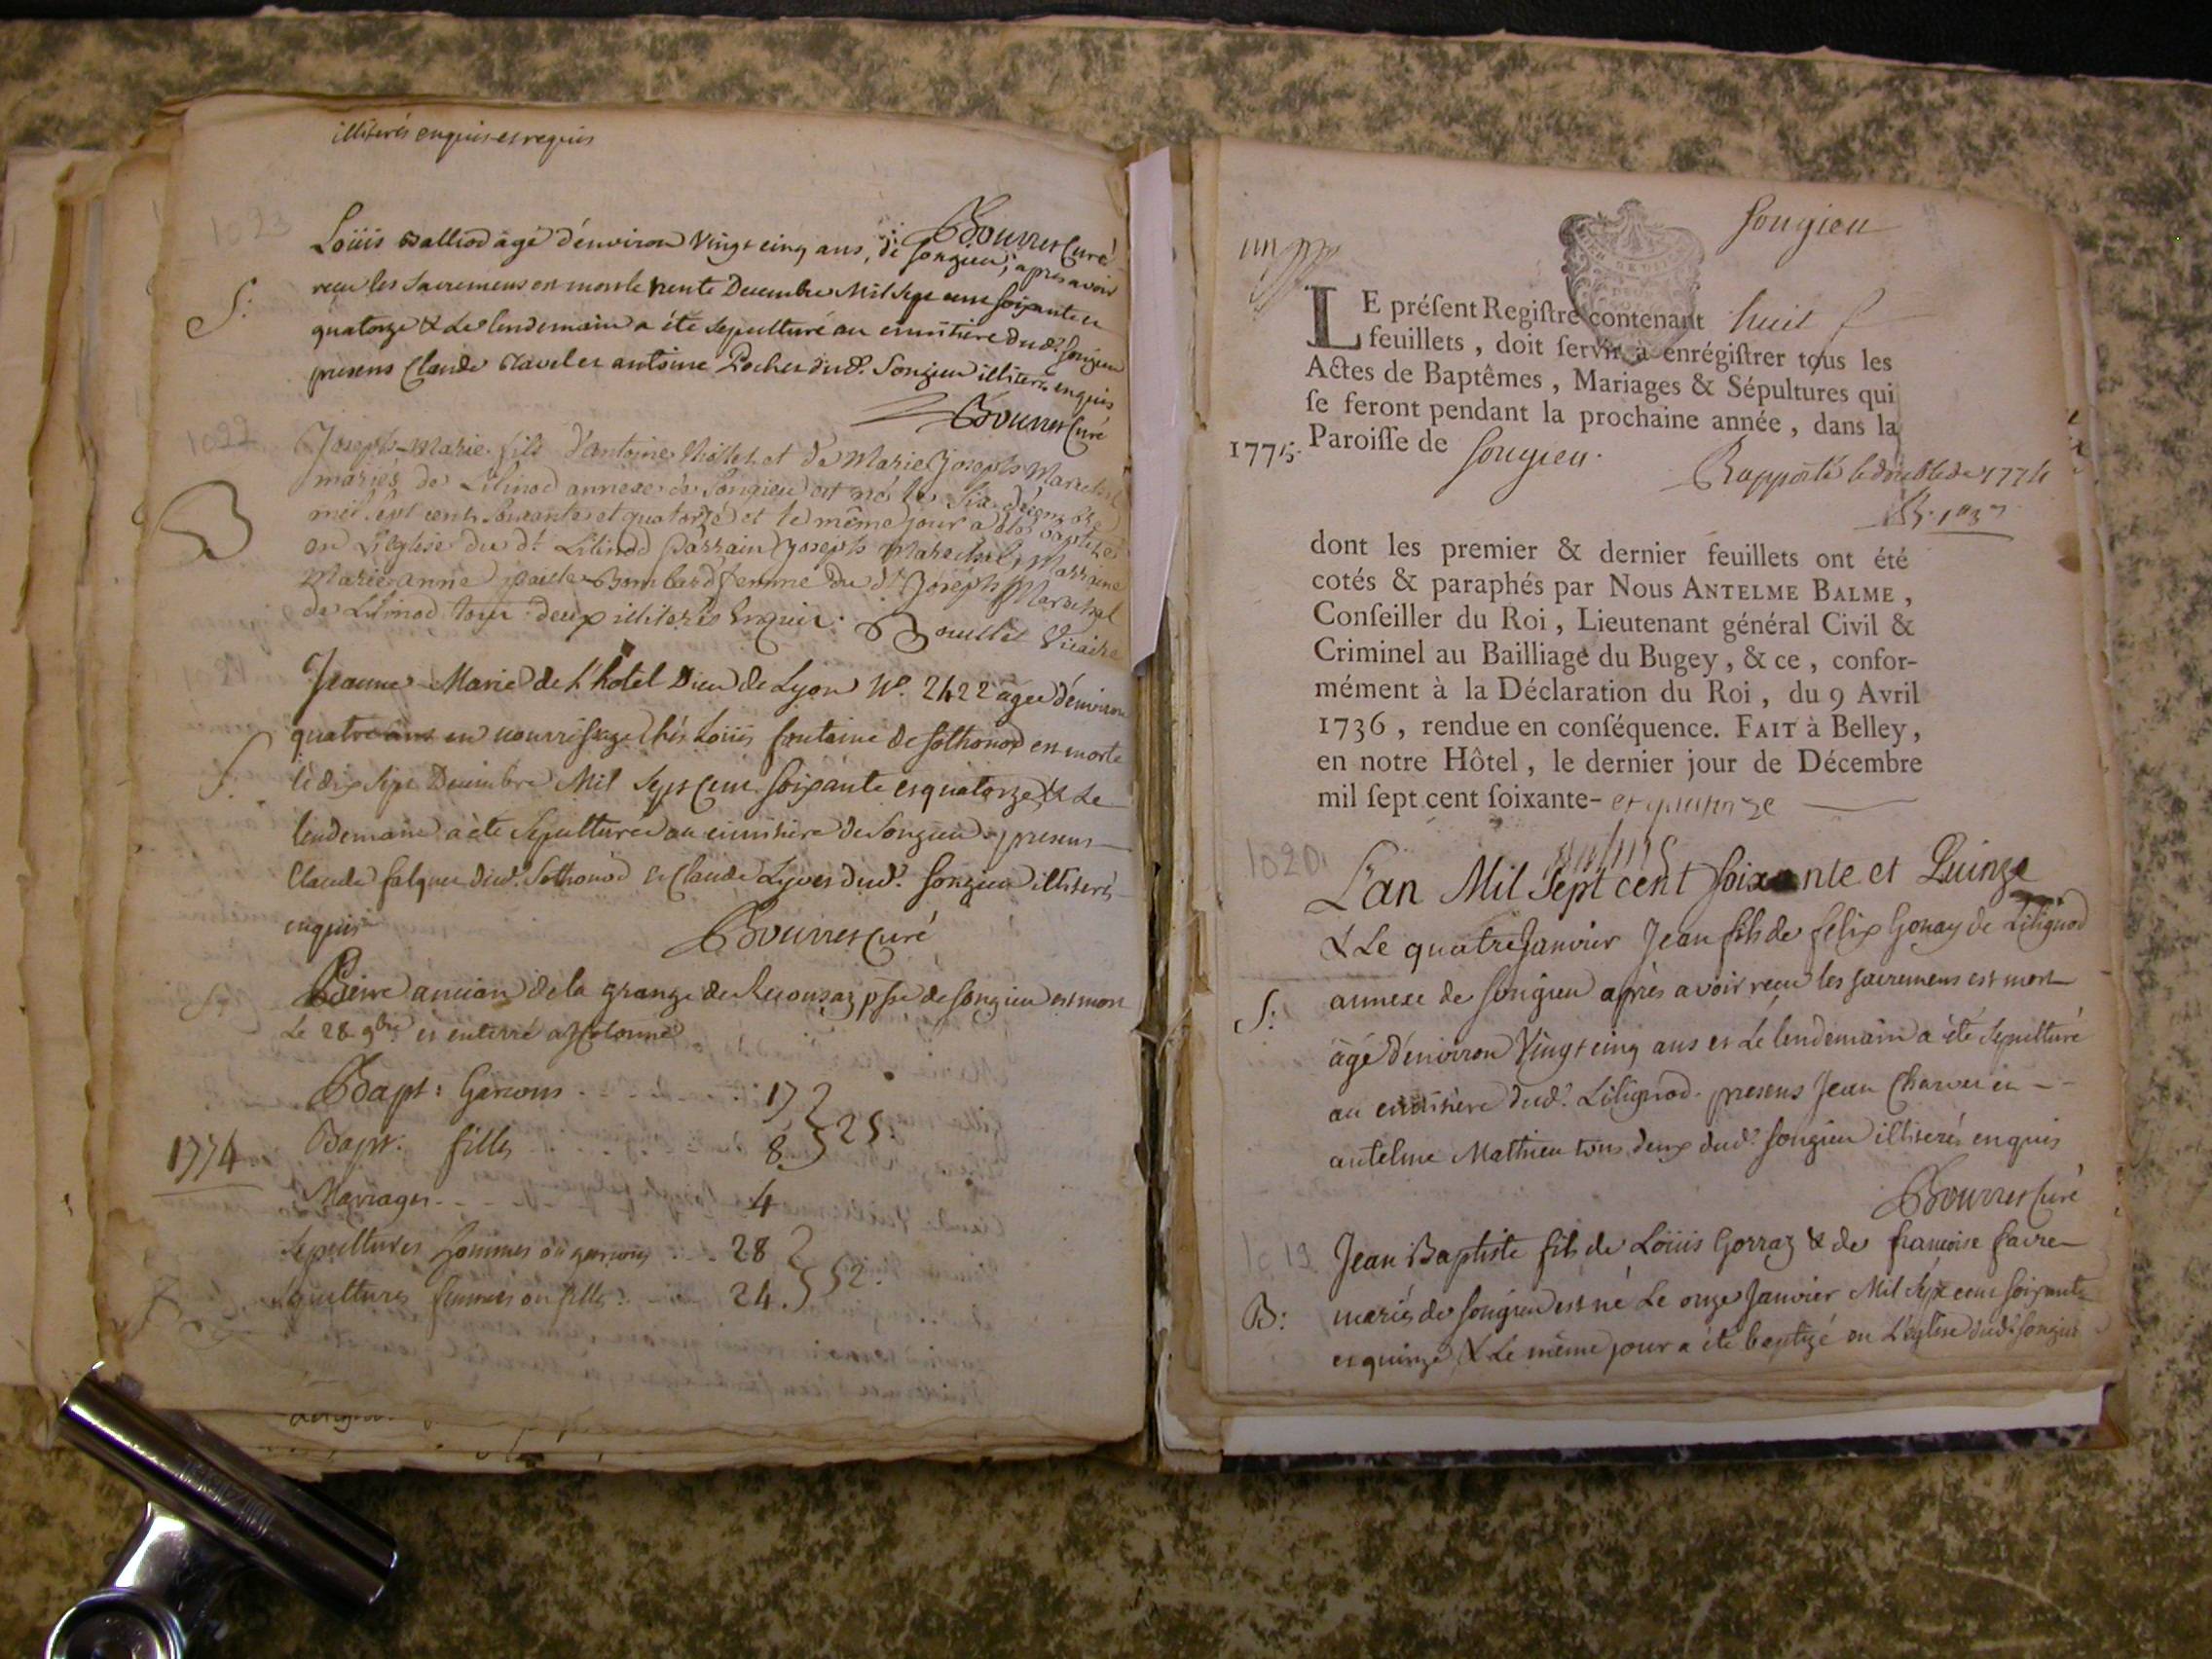 illiterés enquis et requis
Bourret Curé
1023
Loüis Balliod agé d'énviron Vingt cinq ans, de Songieu, après avoir
S:
recu les Sacremens est mort le trente Decembre Mil Sept cent soixante et
quatorze & Le lendemain a été sepulturé au cimitière dud.^t Songieu
presens Claude Clavel et antoine Rochet dud.^t Songieu illiterés enquis
Bourret Curé
1022
Joseph-Marie fils d'antoine et de Marie Joseph Marechal
B
mariés de Lilinod annexe de Songieu est né le six décembre
mil sept cent soixante et quatorze et le même jour a été baptizé
en L'église du d.^t Lilinod Parrain Joseph Marechal, Marraine
Marie anne Bombard femme du d.^t Joseph Marechal
de Lilinod tous deux illiterés Enquis. Boullet Vicaire
Jeanne-Marie de L'hotel Dieu de Lyon N°. 2422 agée d'énviron
quatre ans en nourrissage chés Loüis fontaine de Sothonod est morte
S.
le dix Sept Decembre Mil Sept Cent soixante et quatorze & Le
lendemain a été Sepulturée au cimitière de Songieu. presens
Claude falquet dud.^t Sothonod et Claude Lyvet dud.^t Songieu illiterés
enquis
Bourret Curé
S.
Pierre ancian de la grange de psse de Songieu est mort
Le 28 9bre et enterré a hotonne
Bapt: Garcons . . . . . : 17
25.
Bapt: filles . . . . . 8.
1774
Marrages . . . . . 4
Sepultures hommes ou garcons . . . 28
52.
Sepultures femmes ou filles : . . . 24.
Songieu
LE préſent Regiſtre contenant huit
feuillets, doit ſervir à enrégiſtrer tous les
Actes de Baptêmes, Mariages & Sépultures qui
ſe feront pendant la prochaine année, dans la
1775. Paroiſſe de Songieu.
Rapporté le double de 1774
dont les premier & dernier feuillets ont été
cotés & paraphés par Nous ANTELME BALME,
Conſeiller du Roi, Lieutenant général Civil &
Criminel au Bailliage du Bugey, & ce, confor-
mément à la Déclaration du Roi, du 9 Avril
1736, rendue en conſéquence. FAIT à Belley,
en notre Hôtel, le dernier jour de Décembre
mil ſept cent ſoixante- et quatorze
1020.
L'an Mil Sept cent soixante et Quinze
& Le quatre Janvier Jean fils de felix Gonay de Lilignod
annexe de Songieu après avoir recu les sacremens est mort
S:
agé d'énviron Vingt cinq ans et Le lendemain a été Sepulturé
au cimitière dud.^t Lilignod. presens Jean Charvet et
antelme Mathieu tous deux dud.^t Songieu illiterés enquis
Bourret Curé
1019
Jean Baptiste fils de Loüis Gorraz & de francoise favre
B:
mariés de Songieu est né Le onze Janvier Mil Sept cent soixante
et quinze & Le même jour a été baptizé en L'église dud.^t Songieu